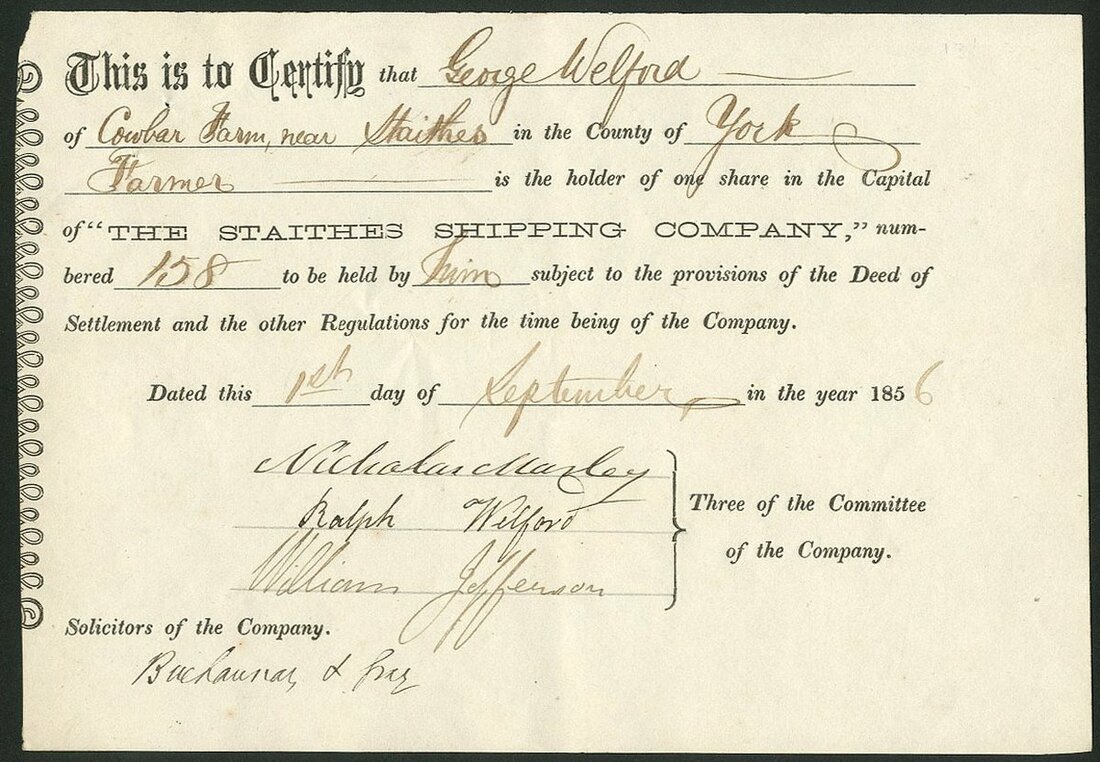 This is to Certify that George Welford
of Cowbar Farm, near Staithes in the County of York
Farmer is the holder of one share in the Capital
of "THE STAITHES SHIPPING COMPANY," num-
bered 158 to be held by him subject to the provisions of the Deed of
Settlement and the other Regulations for the time being of the Company.
Dated this 1st day of September in the year 1856
Nicholas Marley
Ralph Welford
William Jefferson
Three of the Committee
of the Company.
Solicitors of the Company.
&